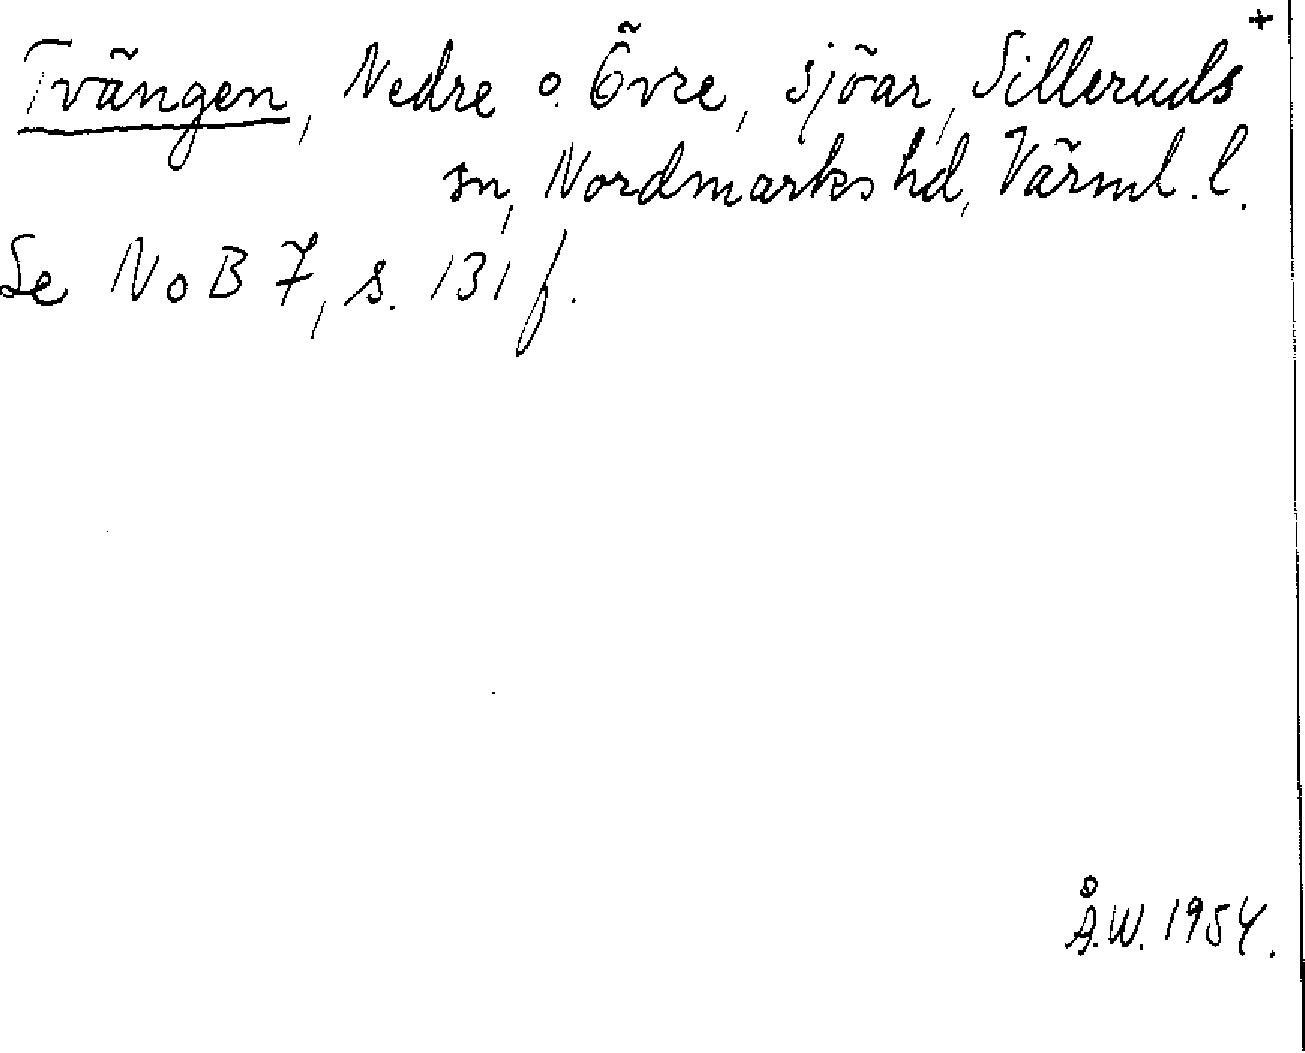 Tvängen, Nedre o. Övre, sjöar, Silleruds+
sn, Nordmarks hd, Värml. l.
Se NoB 7, s. 131 f.
Å.W. 1954.